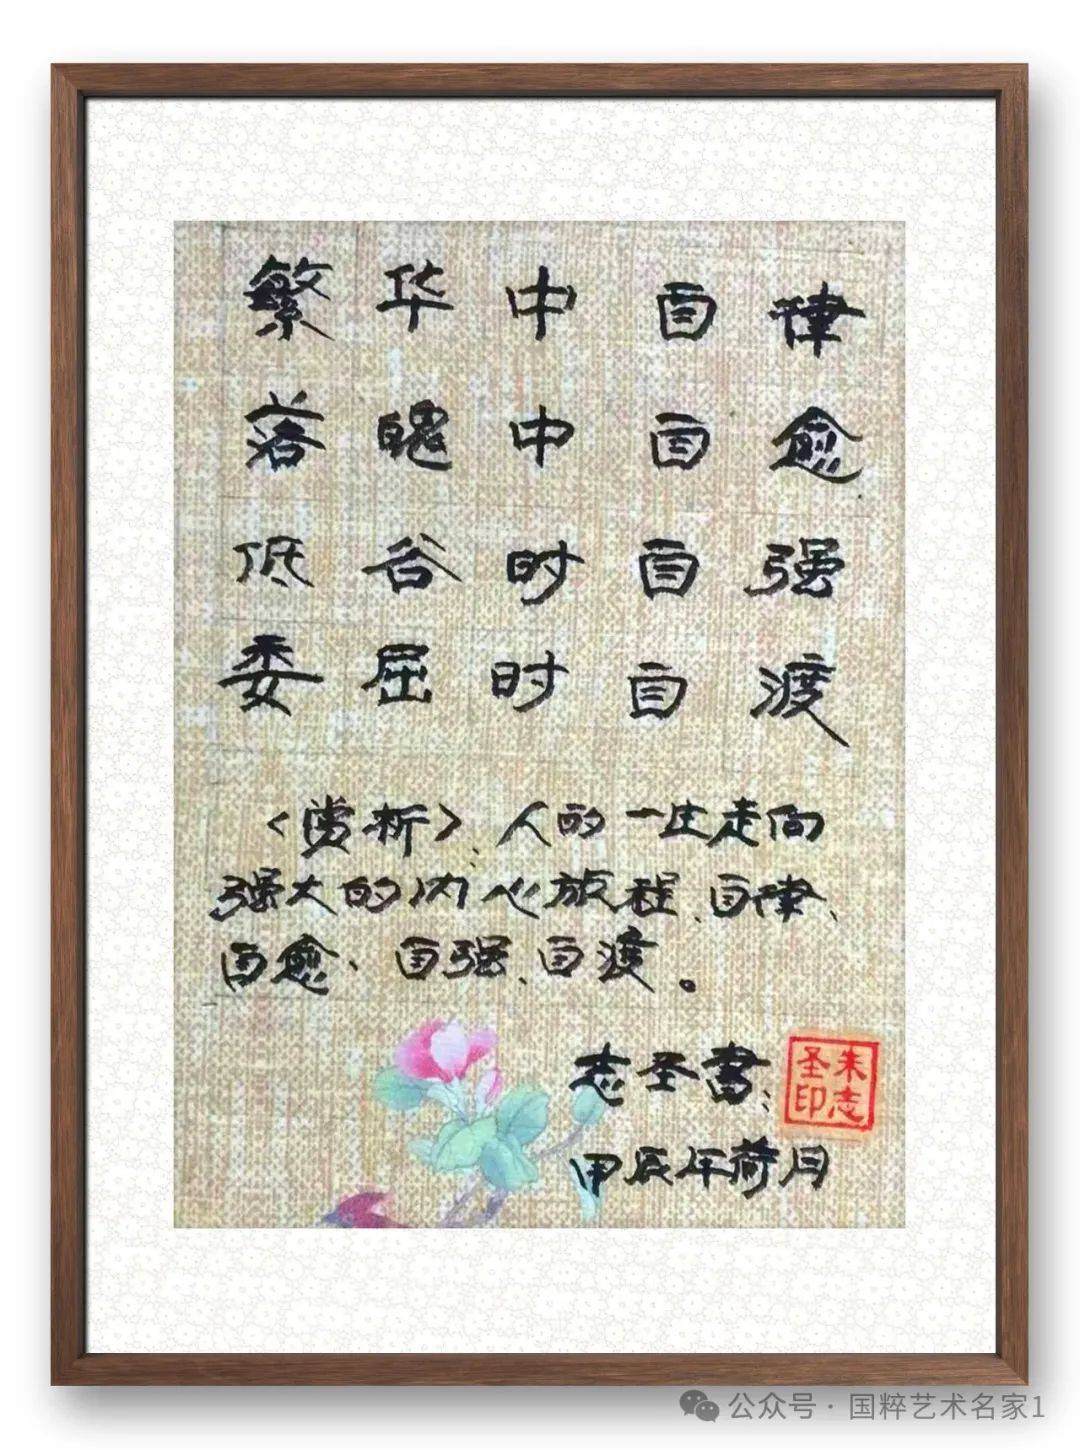 繁华中自律
落魄中自愈
低谷时自强
委屈时自渡
<赏析>、人的一生走向
强大的内心旅程、自律、
自愈、自强、自渡。
志圣書；
朱志
圣印
甲辰年荷月
公众号 · 国粹艺术名家1